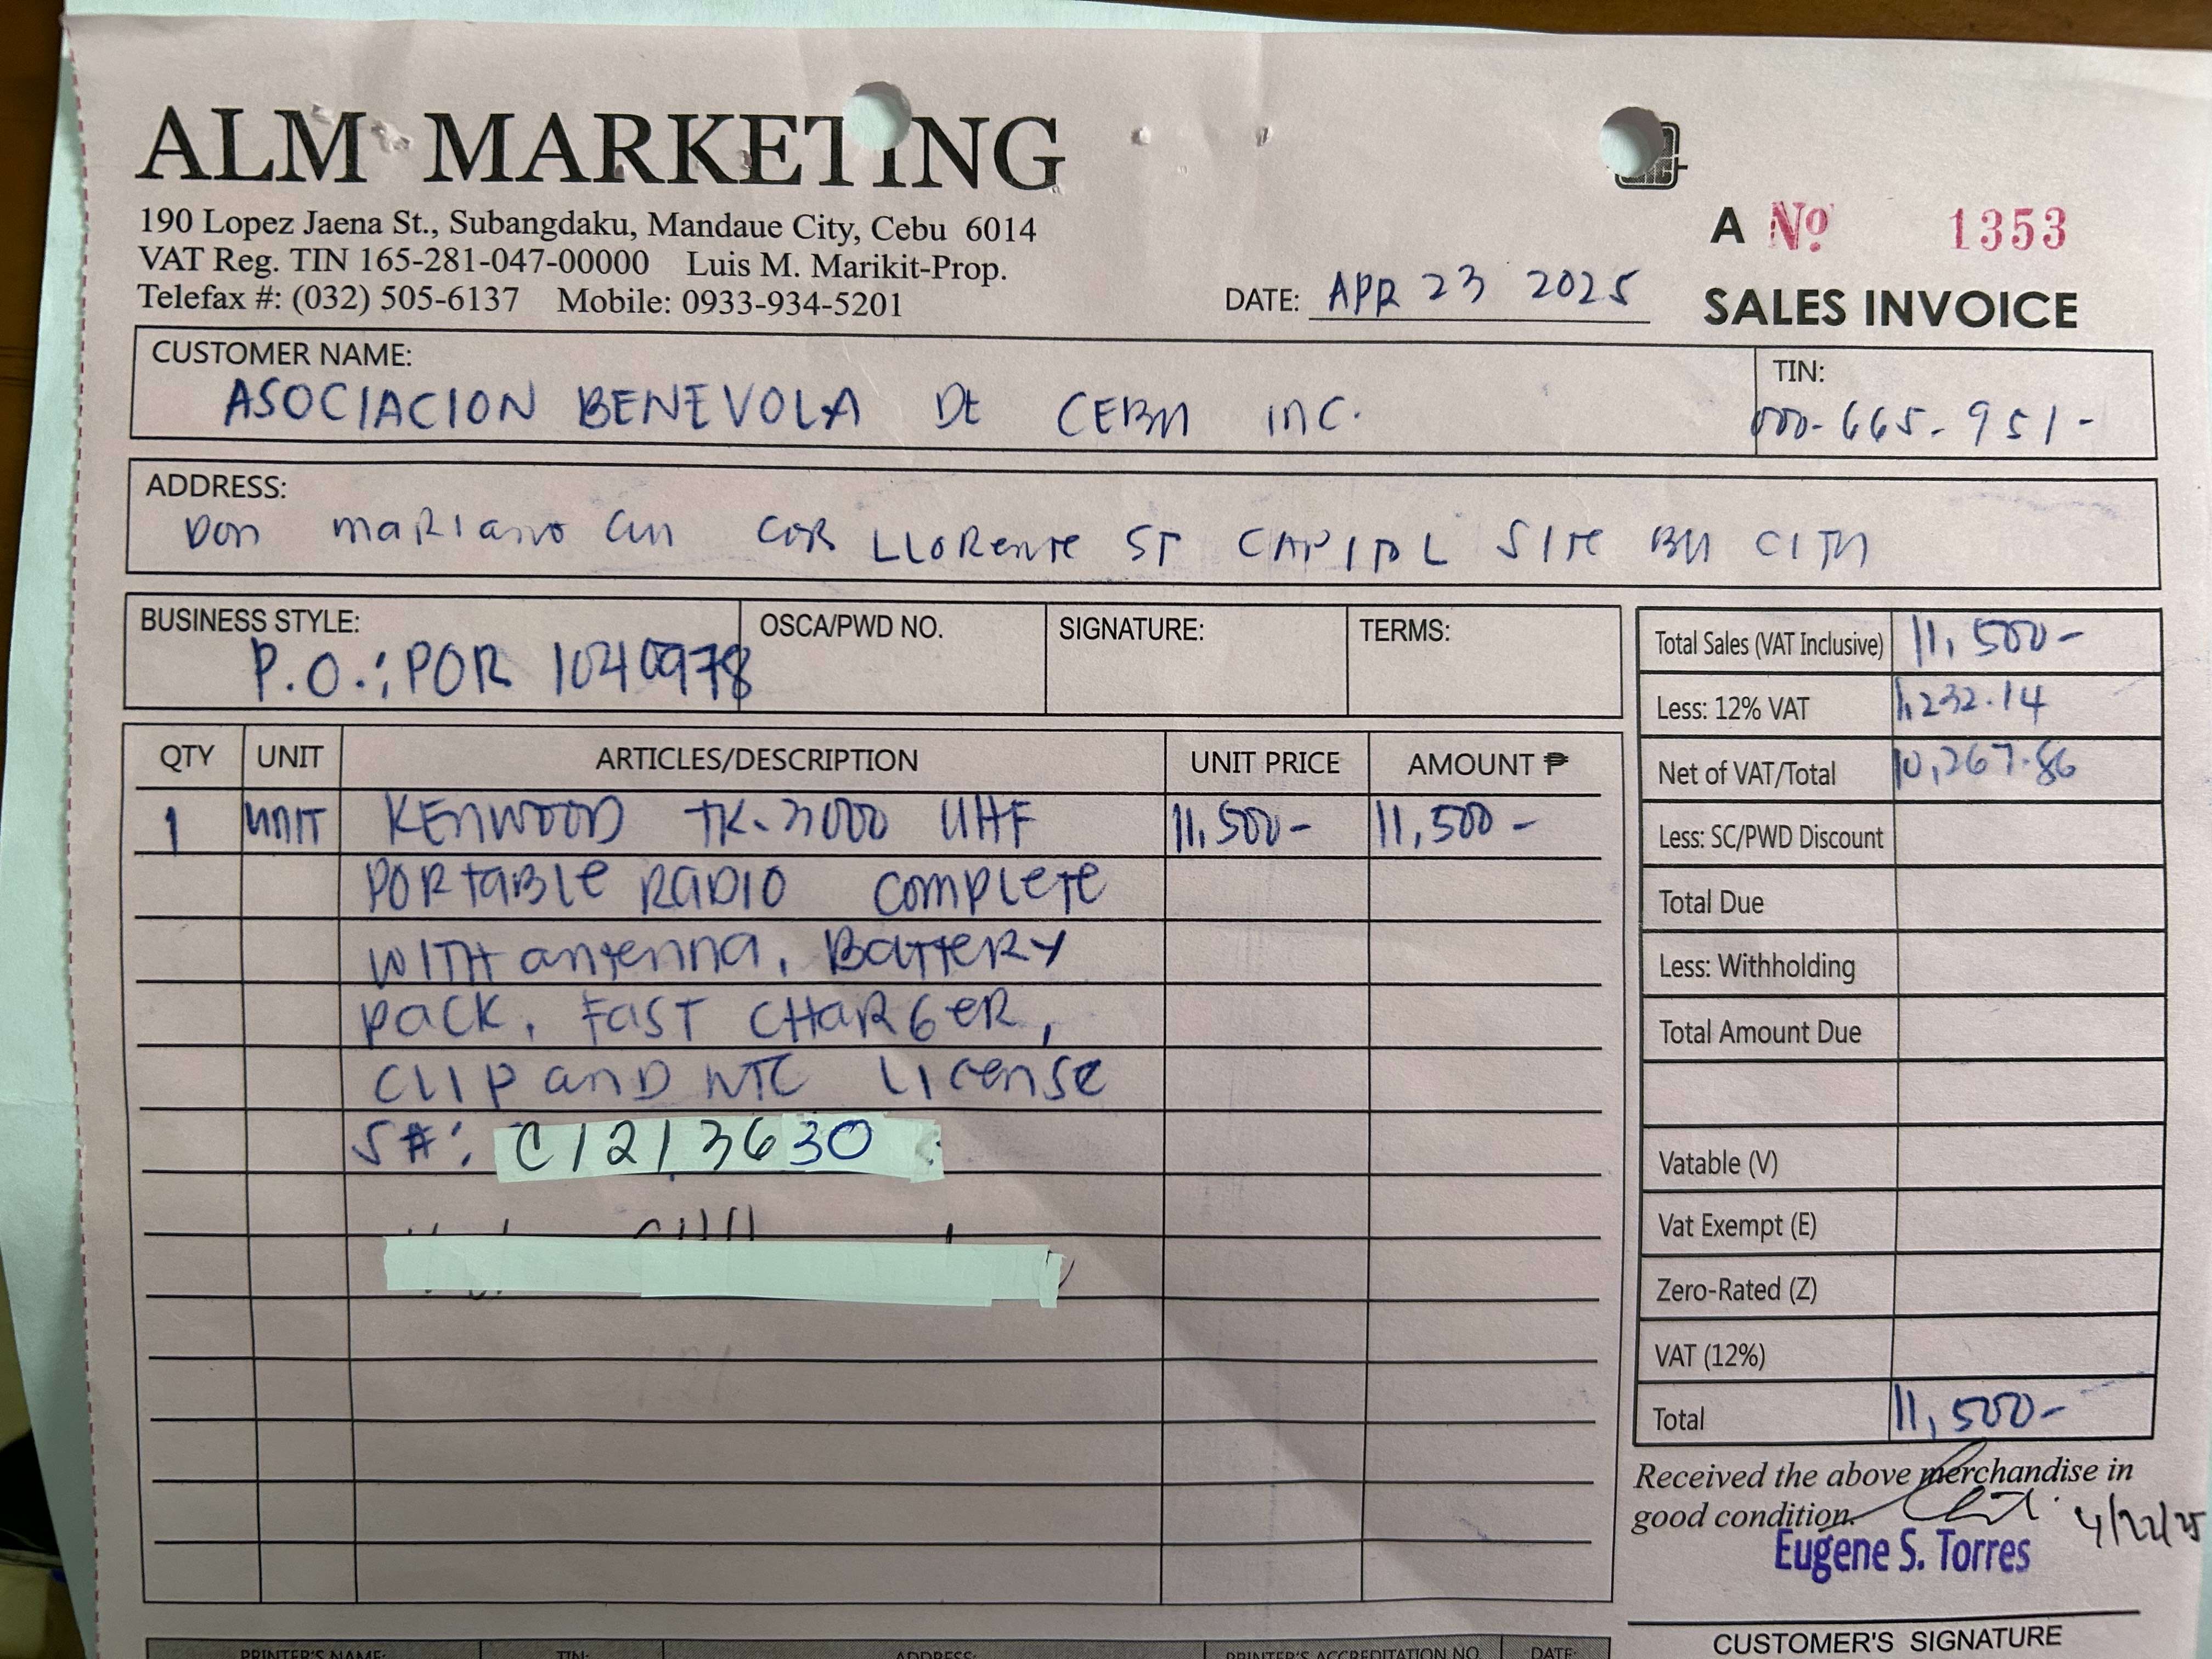 ALM MARKETING
190 Lopez Jaena St., Subangdaku, Mandaue City, Cebu 6014
VAT Reg. TIN 165-281-047-00000 Luis M. Marikit-Prop.
Telefax #: (032) 505-6137 Mobile: 0933-934-5201
A Nº 1353
DATE: APR 23 2025
SALES INVOICE
CUSTOMER NAME:
ASOCIACION BENEVOLA DE CEBU INC.
TIN:
000-665-951-
ADDRESS:
Don mariano cui cor LLorente ST CAPITOL SITE CITY
BUSINESS STYLE:
P.O.: POR 1040978
OSCA/PWD NO.
SIGNATURE:
TERMS:
QTY UNIT ARTICLES/DESCRIPTION UNIT PRICE AMOUNT ₱
1 UNIT KENWOOD TK-3000 UHF 11,500- 11,500-
PORTABLE RADIO COMPLETE
WITH antenna, BATTERY
PACK, FAST CHARGER,
CLIP and NTC LICENSE
S#: C1213630
Total Sales (VAT Inclusive) 11,500-
Less: 12% VAT 1,232.14
Net of VAT/Total 10,267.86
Less: SC/PWD Discount
Total Due
Less: Withholding
Total Amount Due
Vatable (V)
Vat Exempt (E)
Zero-Rated (Z)
VAT (12%)
Total 11,500-
Received the above merchandise in
good condition.
Eugene S. Torres
CUSTOMER'S SIGNATURE
PRINTER'S NAME: TIN: ADDRESS: PRINTER'S ACCREDITATION NO. DATE: